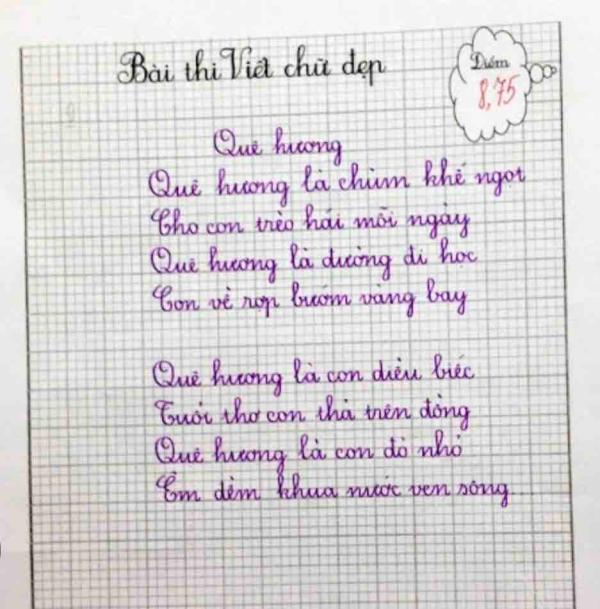 Bài thi Viết chữ đẹp
Điểm
8,75
Quê hương
Quê hương là chùm khế ngọt
Cho con trèo hái mỗi ngày
Quê hương là đường đi học
Con về rợp bướm vàng bay
Quê hương là con diều biếc
Tuổi thơ con thả trên đồng
Quê hương là con đò nhỏ
Êm đềm khua nước ven sông